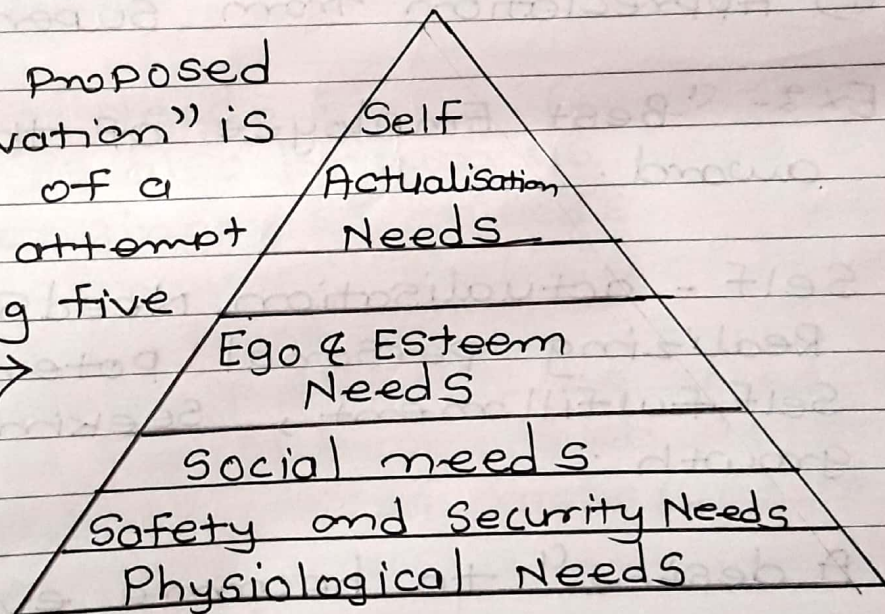 Proposed
vation" is
of a
attempt
g five
Self
Actualisation
Needs
Ego & Esteem
Needs
Social needs
Safety and Security Needs
Physiological Needs